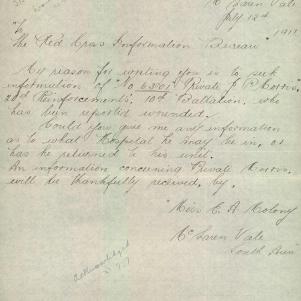 Mc Laren Vale
July 12th 1917
To
The Red Cross Information Bureau
My reason for writing you is to seek
information of "No 6
Private
23rd Reinforcements, 10th Battalion, who
has been reported wounded.
Could you give me any information
as to what Hospital he may be in, or
has he returned to his unit.
An information concerning Private
will be thankfully received, by.
Miss C. A Molony
Mc Laren Vale
South Aus
Acknowledged